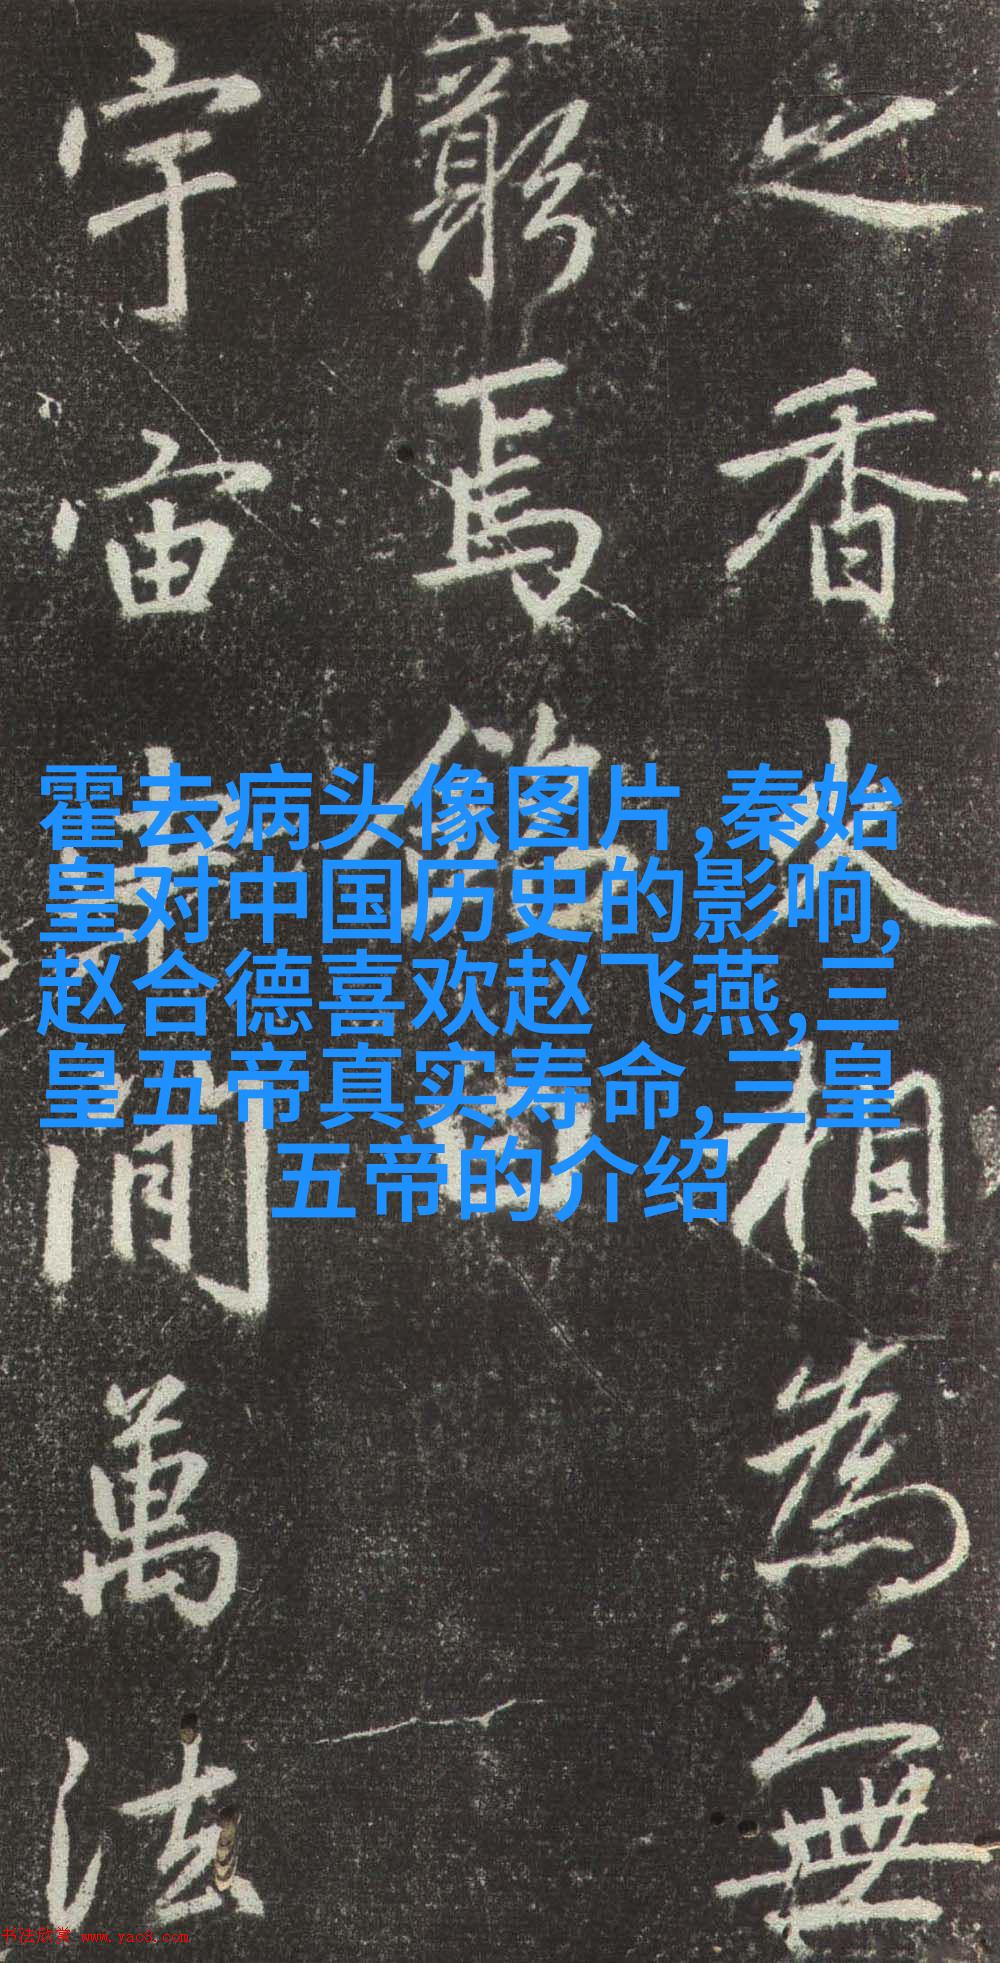 之香相為無
窮焉
宇宙間萬法
霍去病头像图片,秦始
皇对中国历史的影响,
赵合德喜欢赵飞燕,三
皇五帝真实寿命,三皇
五帝的介绍
书法欣赏 www.yac8.com